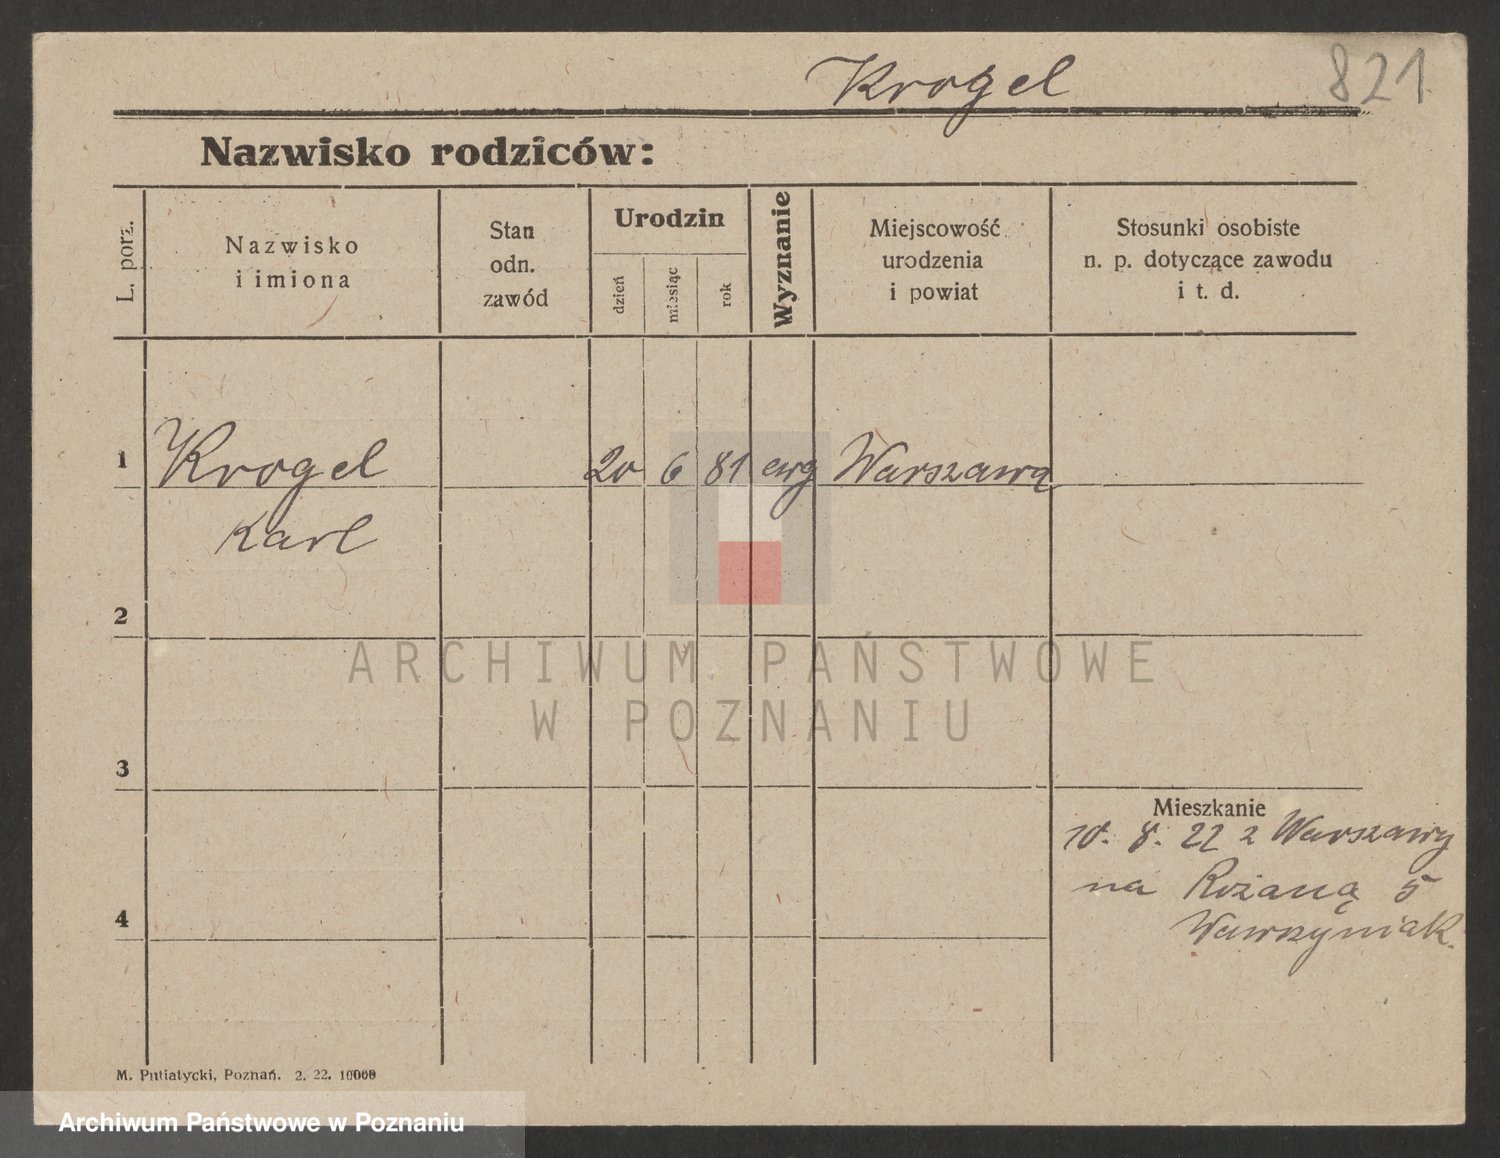 Krogel
821
Nazwisko rodziców:
L. porz.
Nazwisko
i imiona
Stan
odn.
zawód
Urodzin
dzień
miesiąc
rok
Wyznanie
Miejscowość
urodzenia
i powiat
Stosunki osobiste
n. p. dotyczące zawodu
i t. d.
1 Krogel 20 6 81 ewg Warszawa
Karl
2
ARCHIWUM PAŃSTWOWE
W POZNANIU
3
Mieszkanie
10. 8. 22 z Warszawy
na Różaną 5
4
Wawrzyniak.
M. Putiatycki, Poznań. 2. 22. 10000
Archiwum Państwowe w Poznaniu